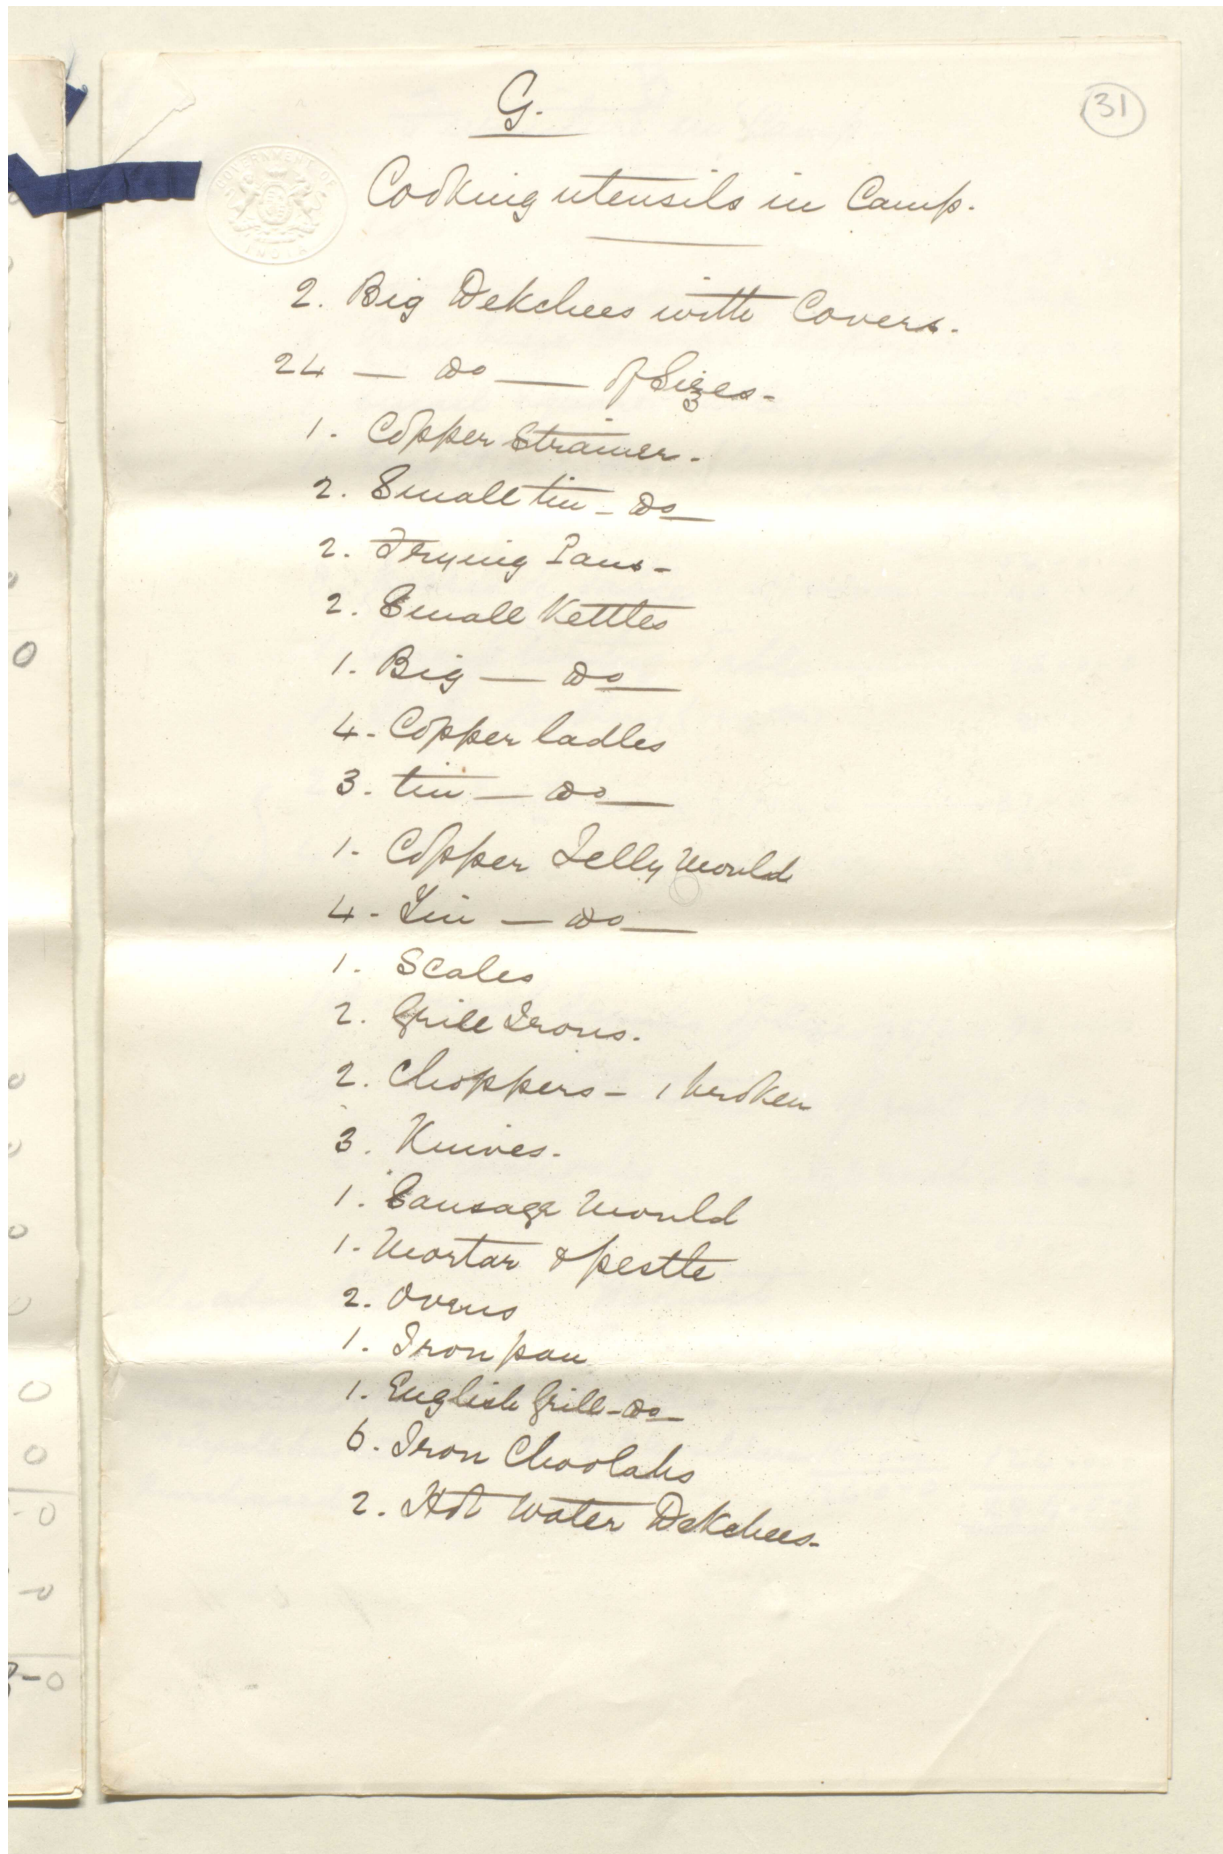 G.
31
GOVERNMENT OF
INDIA
Cooking utensils in Camp.
2. Big Dekchees with Covers.
24 — do — of Sizes-
1. Copper Strainer.
2. Small tin - do
2. Frying Pans-
2. Small Kettles
1. Big — do
4- Copper ladles
3. tin — do
1. Copper Jelly Mould
4- Tin — do
1. Scales
2. Grill Irons.
2. Choppers - 1 broken
3. Knives.
1. Sausage Mould
1. Mortar & pestle
2. Ovens
1. Iron pan
1. English Grill-do-
6. Iron Choolahs
2. Hot Water Dekchees.